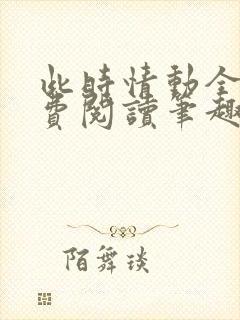 此時情動全
費閱讀筆趣
陌舞琰